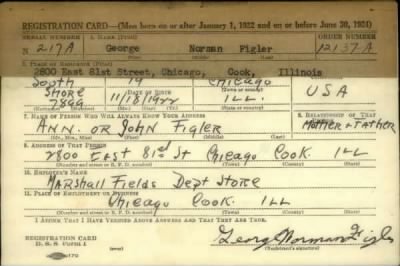 REGISTRATION CARD—(Men born on or after January 1, 1922 and on or before June 30, 1924)
SERIAL NUMBER 1. NAME (Print) ORDER NUMBER
N 217A George Norman Figler 12137-A
(First) (Middle) (Last)
2. PLACE OF RESIDENCE (Print)
2800 East 81st Street, Chicago, Cook, Illinois
South 19 Chicago
Shore DATE OF BIRTH USA
7899 11/18/1922 ILL.
7. NAME OF PERSON WHO WILL ALWAYS KNOW YOUR ADDRESS 8. RELATIONSHIP OF THAT
Ann. or John Figler Mother + Father
(Mr., Mrs., Miss) (First) (Middle) (Last)
9. ADDRESS OF THAT PERSON
2800 East 81st St Chicago Cook. Ill
(Number and street or R. F. D. number) (Town) (County) (State)
10. EMPLOYER'S NAME
Marshall Fields Dept Store
11. PLACE OF EMPLOYMENT OR BUSINESS
Chicago Cook. Ill
(Number and street or R. F. D. number) (Town) (County) (State)
I AFFIRM THAT I HAVE VERIFIED ABOVE ANSWERS AND THAT THEY ARE TRUE.
REGISTRATION CARD
D. S. S. Form 1
George Norman Figler
(Registrant's signature)